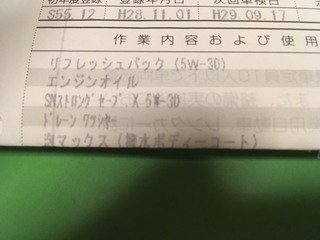 初年度登録 登録年月日 次回車検日
S55.12 H28.11.01 H29.09.17
作業内容および使用
リフレッシュパック (5W-30)
エンジンオイル
SNストロングセーブ.X 5W-30
ドレーン ワッシャー
泡マックス (撥水ボディーコート)